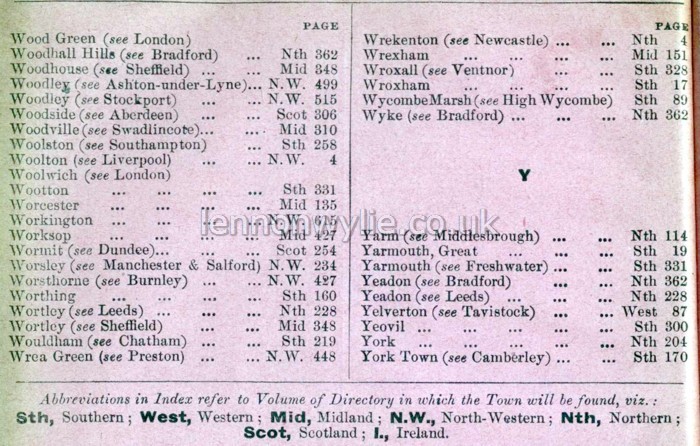 PAGE
Wood Green (see London)
Woodhall Hills (see Bradford) ... Nth 362
Woodhouse (see Sheffield) ... ... Mid 348
Woodley (see Ashton-under-Lyne)... N.W. 499
Woodley (see Stockport) ... ... N.W. 515
Woodside (see Aberdeen) ... Scot 306
Woodville (see Swadlincote)... ... Mid 310
Woolston (see Southampton) ... Sth 258
Woolton (see Liverpool) ... ... N.W. 4
Woolwich (see London)
Wootton ... ... ... ... Sth 331
Worcester ... ... ... ... Mid 135
Workington ... ... ... N.W. 615
Worksop ... ... ... ... Mid 427
Wormit (see Dundee)... ... ... Scot 254
Worsley (see Manchester & Salford) N.W. 234
Worsthorne (see Burnley) ... N.W. 427
Worthing ... ... ... ... Sth 160
Wortley (see Leeds) ... ... ... Nth 228
Wortley (see Sheffield) ... ... Mid 348
Wouldham (see Chatham) ... ... Sth 219
Wrea Green (see Preston) ... N.W. 448
PAGE
Wrekenton (see Newcastle) ... ... Nth 4
Wrexham ... ... ... ... Mid 151
Wroxall (see Ventnor) ... ... Sth 328
Wroxham ... ... ... ... Sth 17
Wycombe Marsh (see High Wycombe) Sth 89
Wyke (see Bradford) ... ... ... Nth 362
Y
Yarm (see Middlesbrough) ... ... Nth 114
Yarmouth, Great ... ... ... Sth 19
Yarmouth (see Freshwater) ... ... Sth 331
Yeadon (see Bradford) ... ... Nth 362
Yeadon (see Leeds) ... ... ... Nth 228
Yelverton (see Tavistock) ... ... West 87
Yeovil ... ... ... ... ... Sth 300
York ... ... ... ... ... Nth 204
York Town (see Camberley) ... Sth 170
lennonwylie.co.uk
Abbreviations in Index refer to Volume of Directory in which the Town will be found, viz.:
Sth, Southern; West, Western; Mid, Midland; N.W., North-Western; Nth, Northern;
Scot, Scotland; I., Ireland.